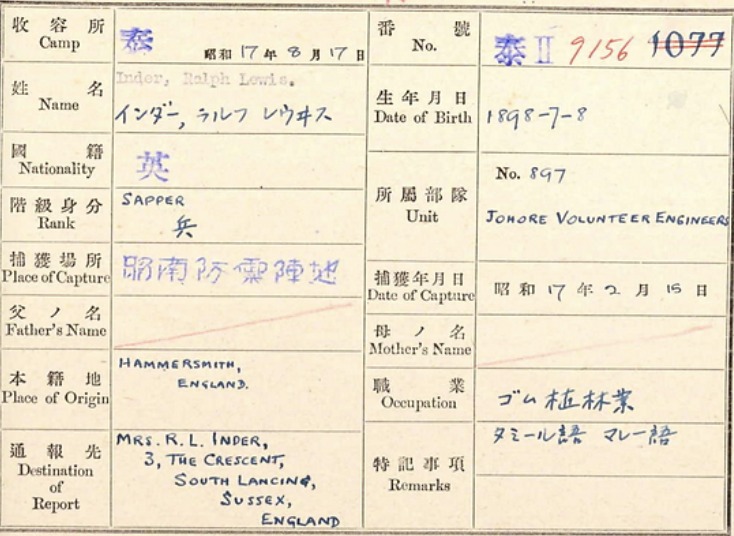 收容所
Camp
泰 昭和17年8月17日
番號
No.
泰Ⅱ 9156 1077
姓名
Name
Inder, Ralph Lewis.
インダー, ラルフ レウヰス
生年月日
Date of Birth
1898-7-8
國籍
Nationality
英
所屬部隊
Unit
No. 897
JOHORE VOLUNTEER ENGINEERS
階級身分
Rank
SAPPER
兵
捕獲場所
Place of Capture
昭南防衛陣地
捕獲年月日
Date of Capture
昭和17年2月15日
父ノ名
Father's Name
母ノ名
Mother's Name
本籍地
Place of Origin
HAMMERSMITH,
ENGLAND.
職業
Occupation
ゴム植林業
通報先
Destination
of
Report
MRS. R. L. INDER,
3, THE CRESCENT,
SOUTH LANCING,
SUSSEX,
ENGLAND
特記事項
Remarks
タミール語 マレー語